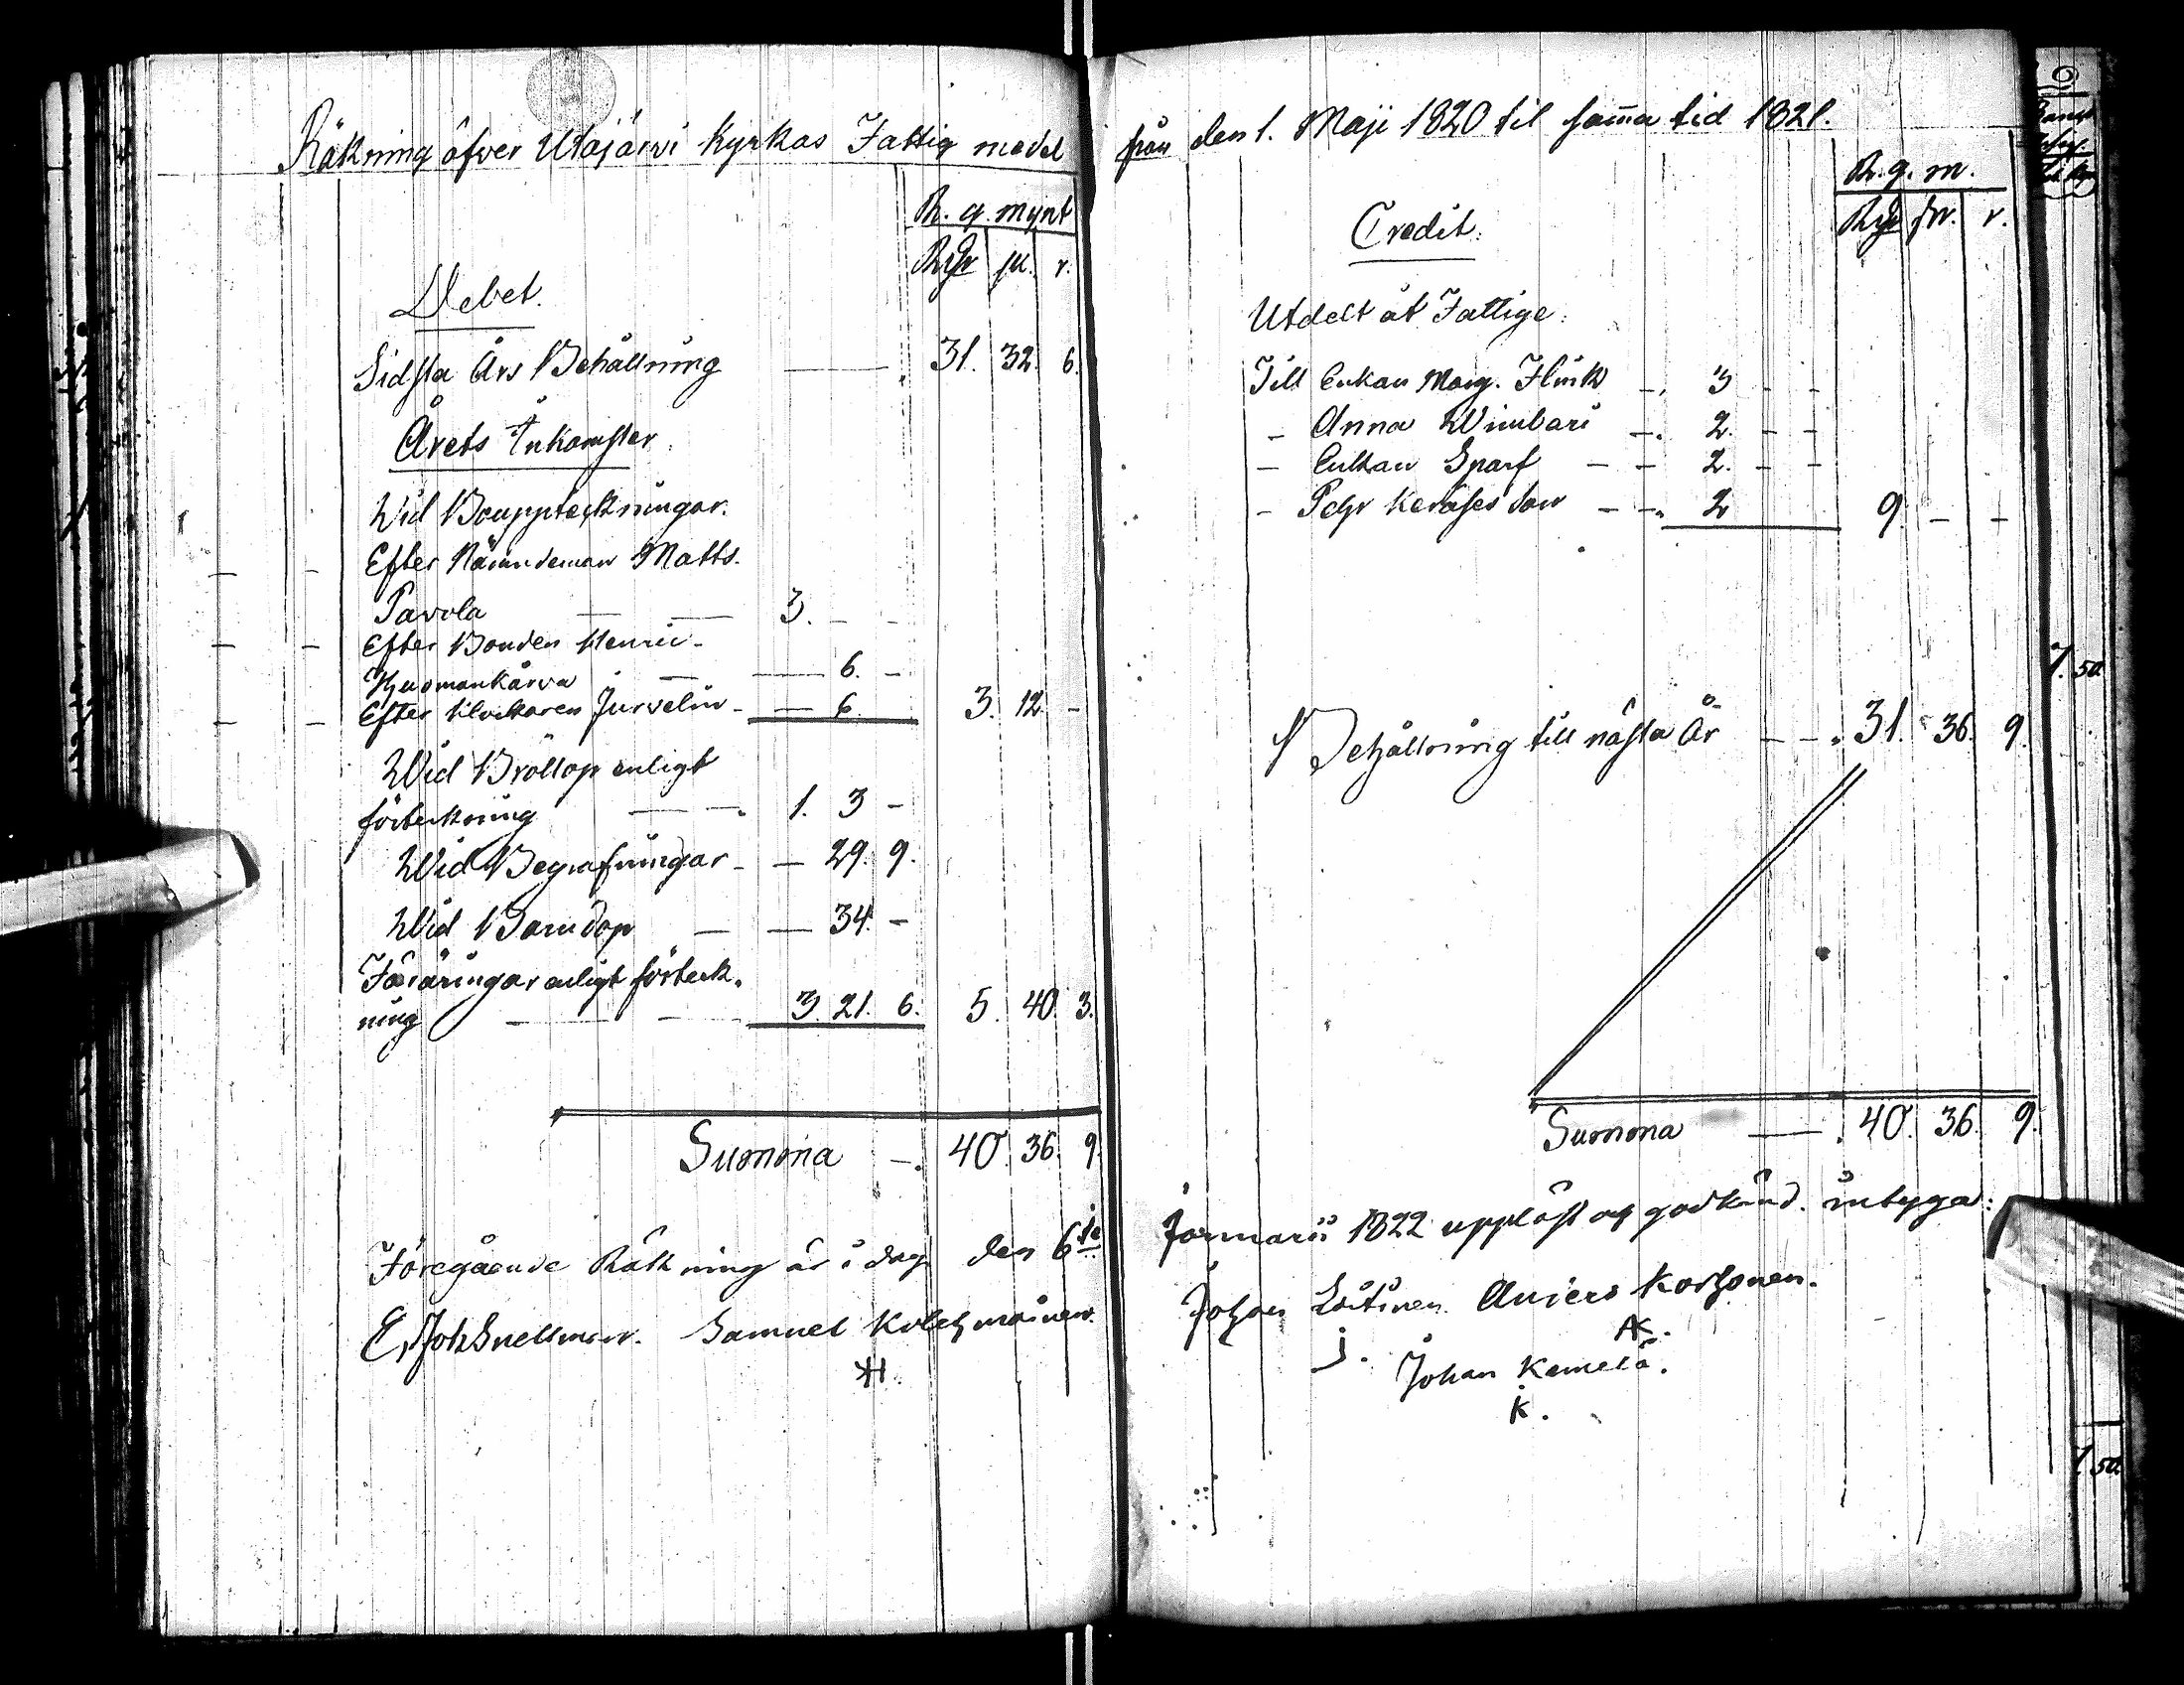 Räkning öfver Utajärvi Kyrkas Fattig medel
R. g. mynt
Rgr sk. r.
Debet.
Sidsta Års Behållning — 31. 32. 6.
Årets Inkomster
Wid Bouppteckningar.
Efter Nämndeman Matts.
Pavola — — 3. - -
Efter Bonden Henric
— 6. -
Efter Jurvelin - — 6. 3. 12. -
Wid Bröllop enligt
förteckning — — 1. 3 -
Wid Begrafningar - — 29. 9.
Wid Barndop — — 34. -
Föräringar enligt förteck-
ning — — 3. 21. 6. 5. 40. 3.
Summa —. 40. 36. 9.
Föregående Räkning är i dag den 6te
E. Joh Snellman. Samuel Kolehmainen.
från den 1. Maji 1820 til sam̄a tid 1821.
R. g. m.
Rgr sk. r.
Credit.
Utdelt åt Fattige:
Till Enkan Marg. Flink —. 3 - -
- Anna Wimbari —. 2. - -
- Enkan Sparf - - 2. - -
- Pehr Keräses son - -. 2 9. - -
Behållning till nästa År - -. 31. 36. 9.
Summa —. 40. 36. 9.
Januarii 1822 uppläst och godkänd. intyga:
Johan Anders Korhonen.
j. AK.
Johan Kemilä.
K.
7. 50
7 50